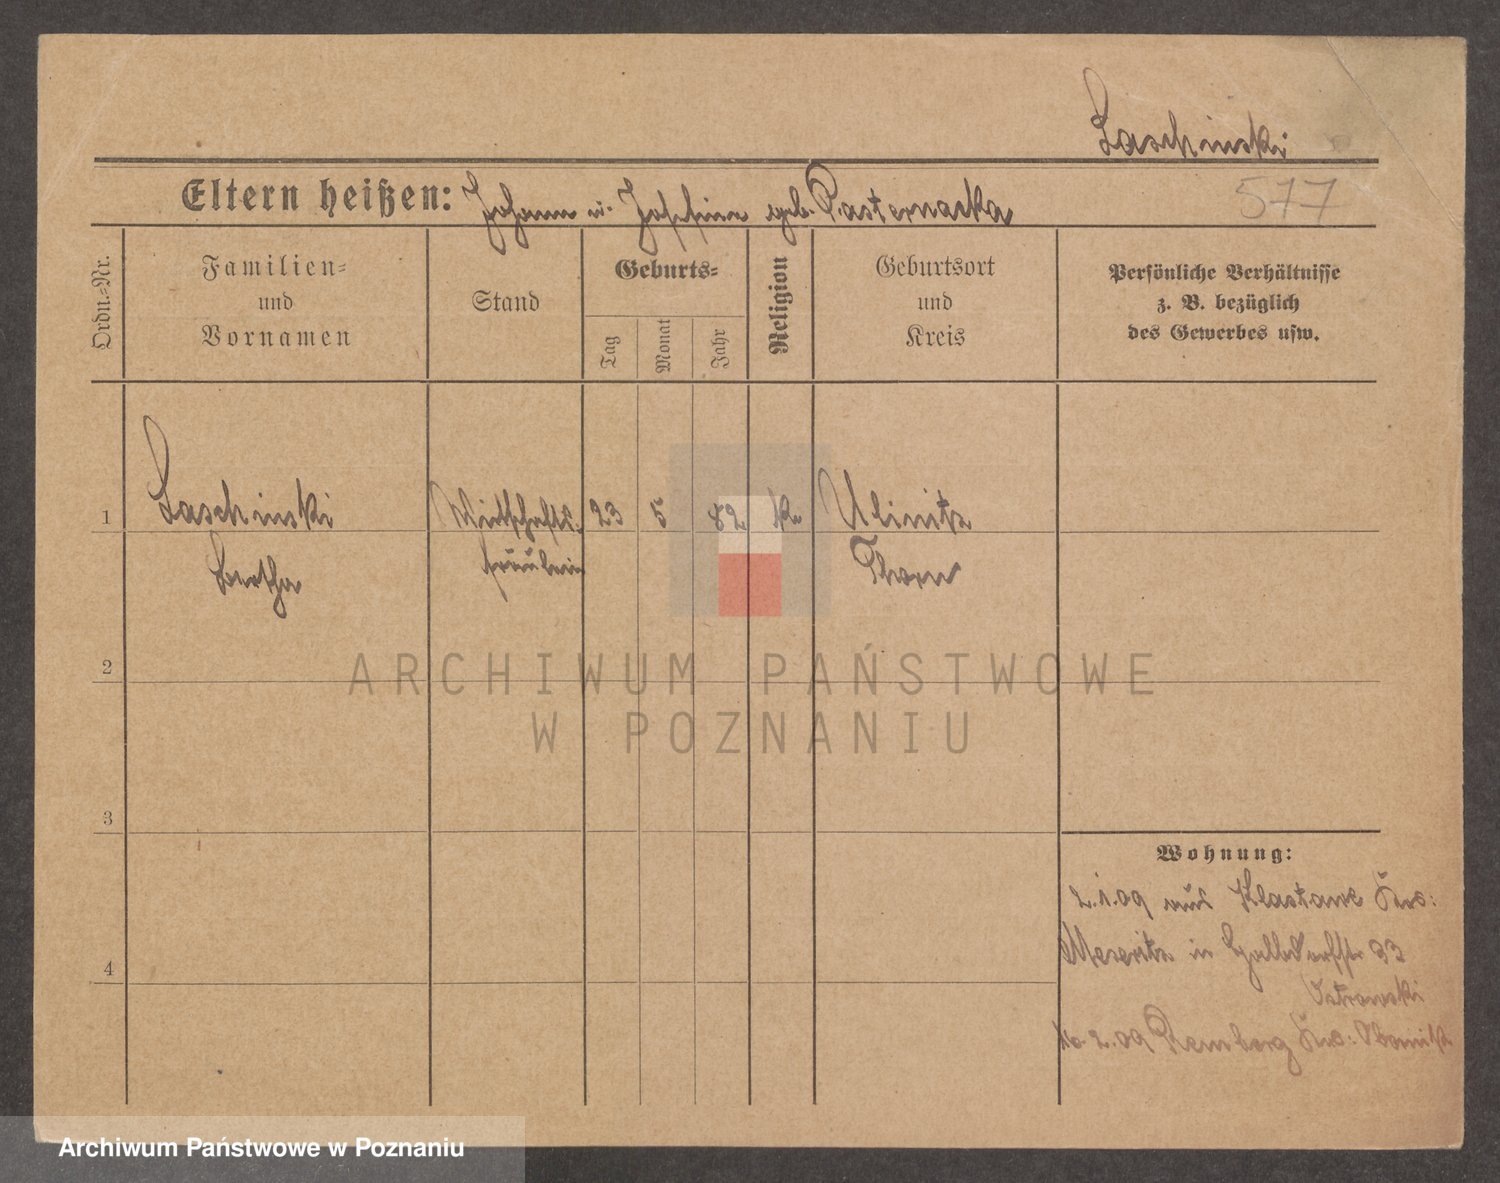 Laschinski
Eltern heißen: Johann u. Josefine geb. Pasternacka
577
Ordn.-Nr.
Familien-
und
Vornamen
Stand
Geburts-
Tag
Monat
Jahr
Religion
Geburtsort
und
Kreis
Persönliche Verhältnisse
z. B. bezüglich
des Gewerbes usw.
1
Laschinski
Bertha
Wirtschafts-
fräulein
23
5
82
k.
Thorn
2
ARCHIWUM PAŃSTWOWE
W POZNANIU
3
Wohnung:
2.1.09 aus Krs:
Meseritz in 33
Ostrowski
4
2.09 Krs: Obornik
Archiwum Państwowe w Poznaniu